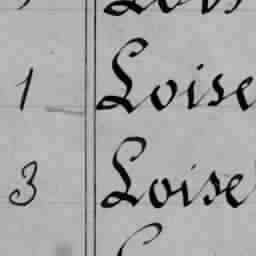 1 Loise
3 Loise